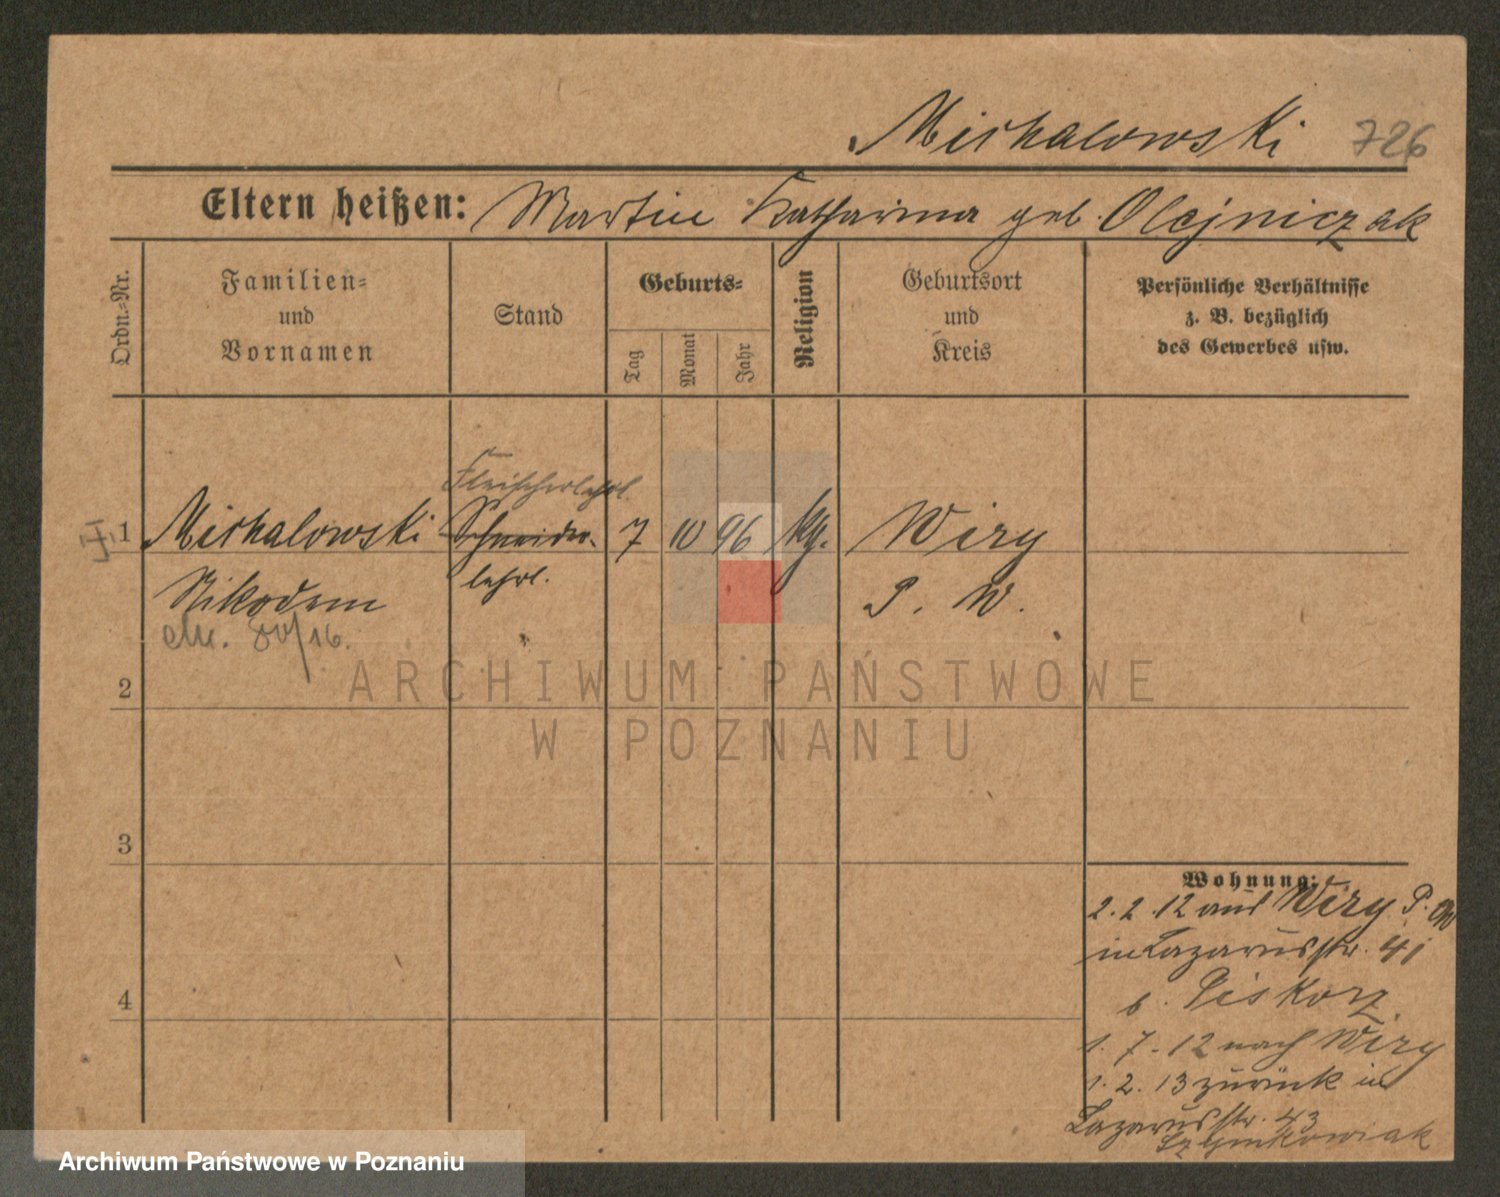 Michalowski 726
Eltern heißen: Martin Katharina geb. Olejniczak
Ordn.=Nr.
Familien=
und
Vornamen
Stand
Geburts=
Tag
Monat
Jahr
Religion
Geburtsort
und
Kreis
Persönliche Verhältnisse
z. B. bezüglich
des Gewerbes usw.
Fleischerlehrl.
1 Michalowski Schneider- 7 10 96 kg. Wiry
Nikodem lehrl. P. W.
/16.
2
3
4
Wohnung:
2.2.12 aus Wiry P. W
in Lazarusstr. 41
b. Piskorz
1.7.12 nach Wiry
1.2.13 zurück in
Lazarusstr. 43
Szymkowiak
ARCHIWUM PAŃSTWOWE
W POZNANIU
Archiwum Państwowe w Poznaniu